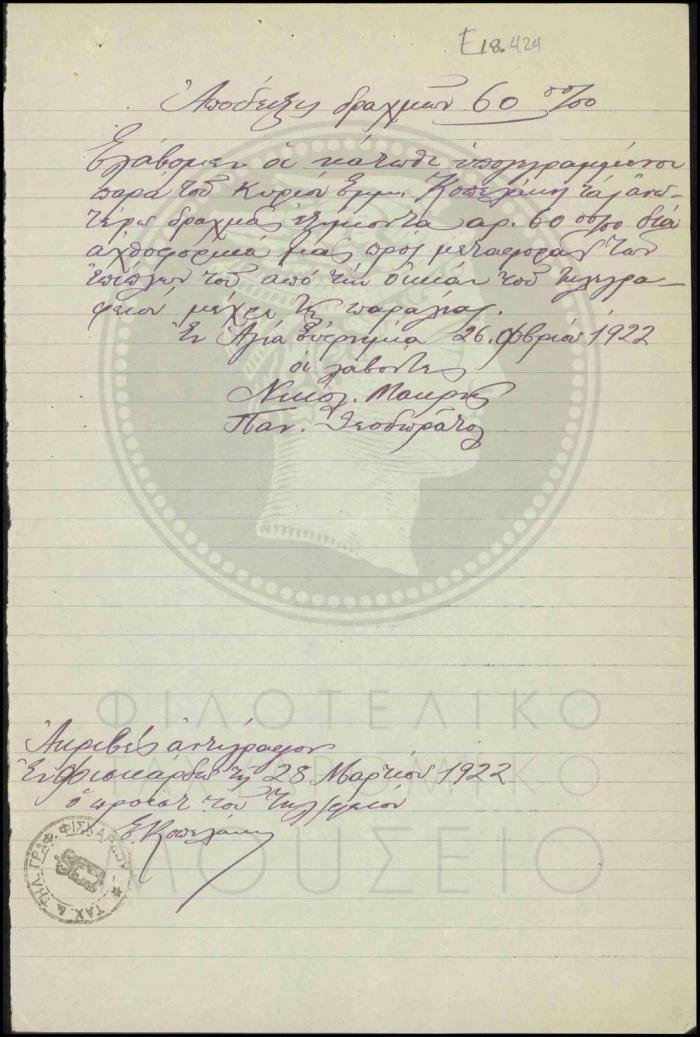 Ε18.424
Ἀπόδειξις δραχμῶν 60 ο)οο
Ἐλάβομεν οἱ κάτωθι ὑπογεγραμμένοι
παρὰ τοῦ Κυρίου Εμμ. Κοπελάκη τὰς ἀνω-
τέρω δραχμὰς ἑξήκοντα αρ. 60 διὰ
ἀχθοφορικά μας πρὸς μεταφορὰν τῶν
ἐπίπλων τοῦ ἀπὸ τὴν οἰκίαν τοῦ τηλεγρα-
φείου μέχρι τῆς παραλίας.
Ἐν Ἁγία Εὐφημία 26. Φβρίου 1922
οἱ λαβόντες
Νικόλ. Μακρῆς
Παν. Θεοδωράτος
Ἀκριβὲς ἀντίγραφον
Ἐν Φισκάρδω τῇ 28 Μαρτίου 1922
ὁ προϊστ. τοῦ Τηλ)φείου
Ε. Κοπελάκης
ΤΑΧ. & ΤΗΛ. ΓΡΑΦ. ΦΙΣΚΑΡΔΟΥ
ΦΙΛΟΤΕΛΙΚΟ
ΤΑΧΥΔΡΟΜΙΚΟ
ΜΟΥΣΕΙΟ